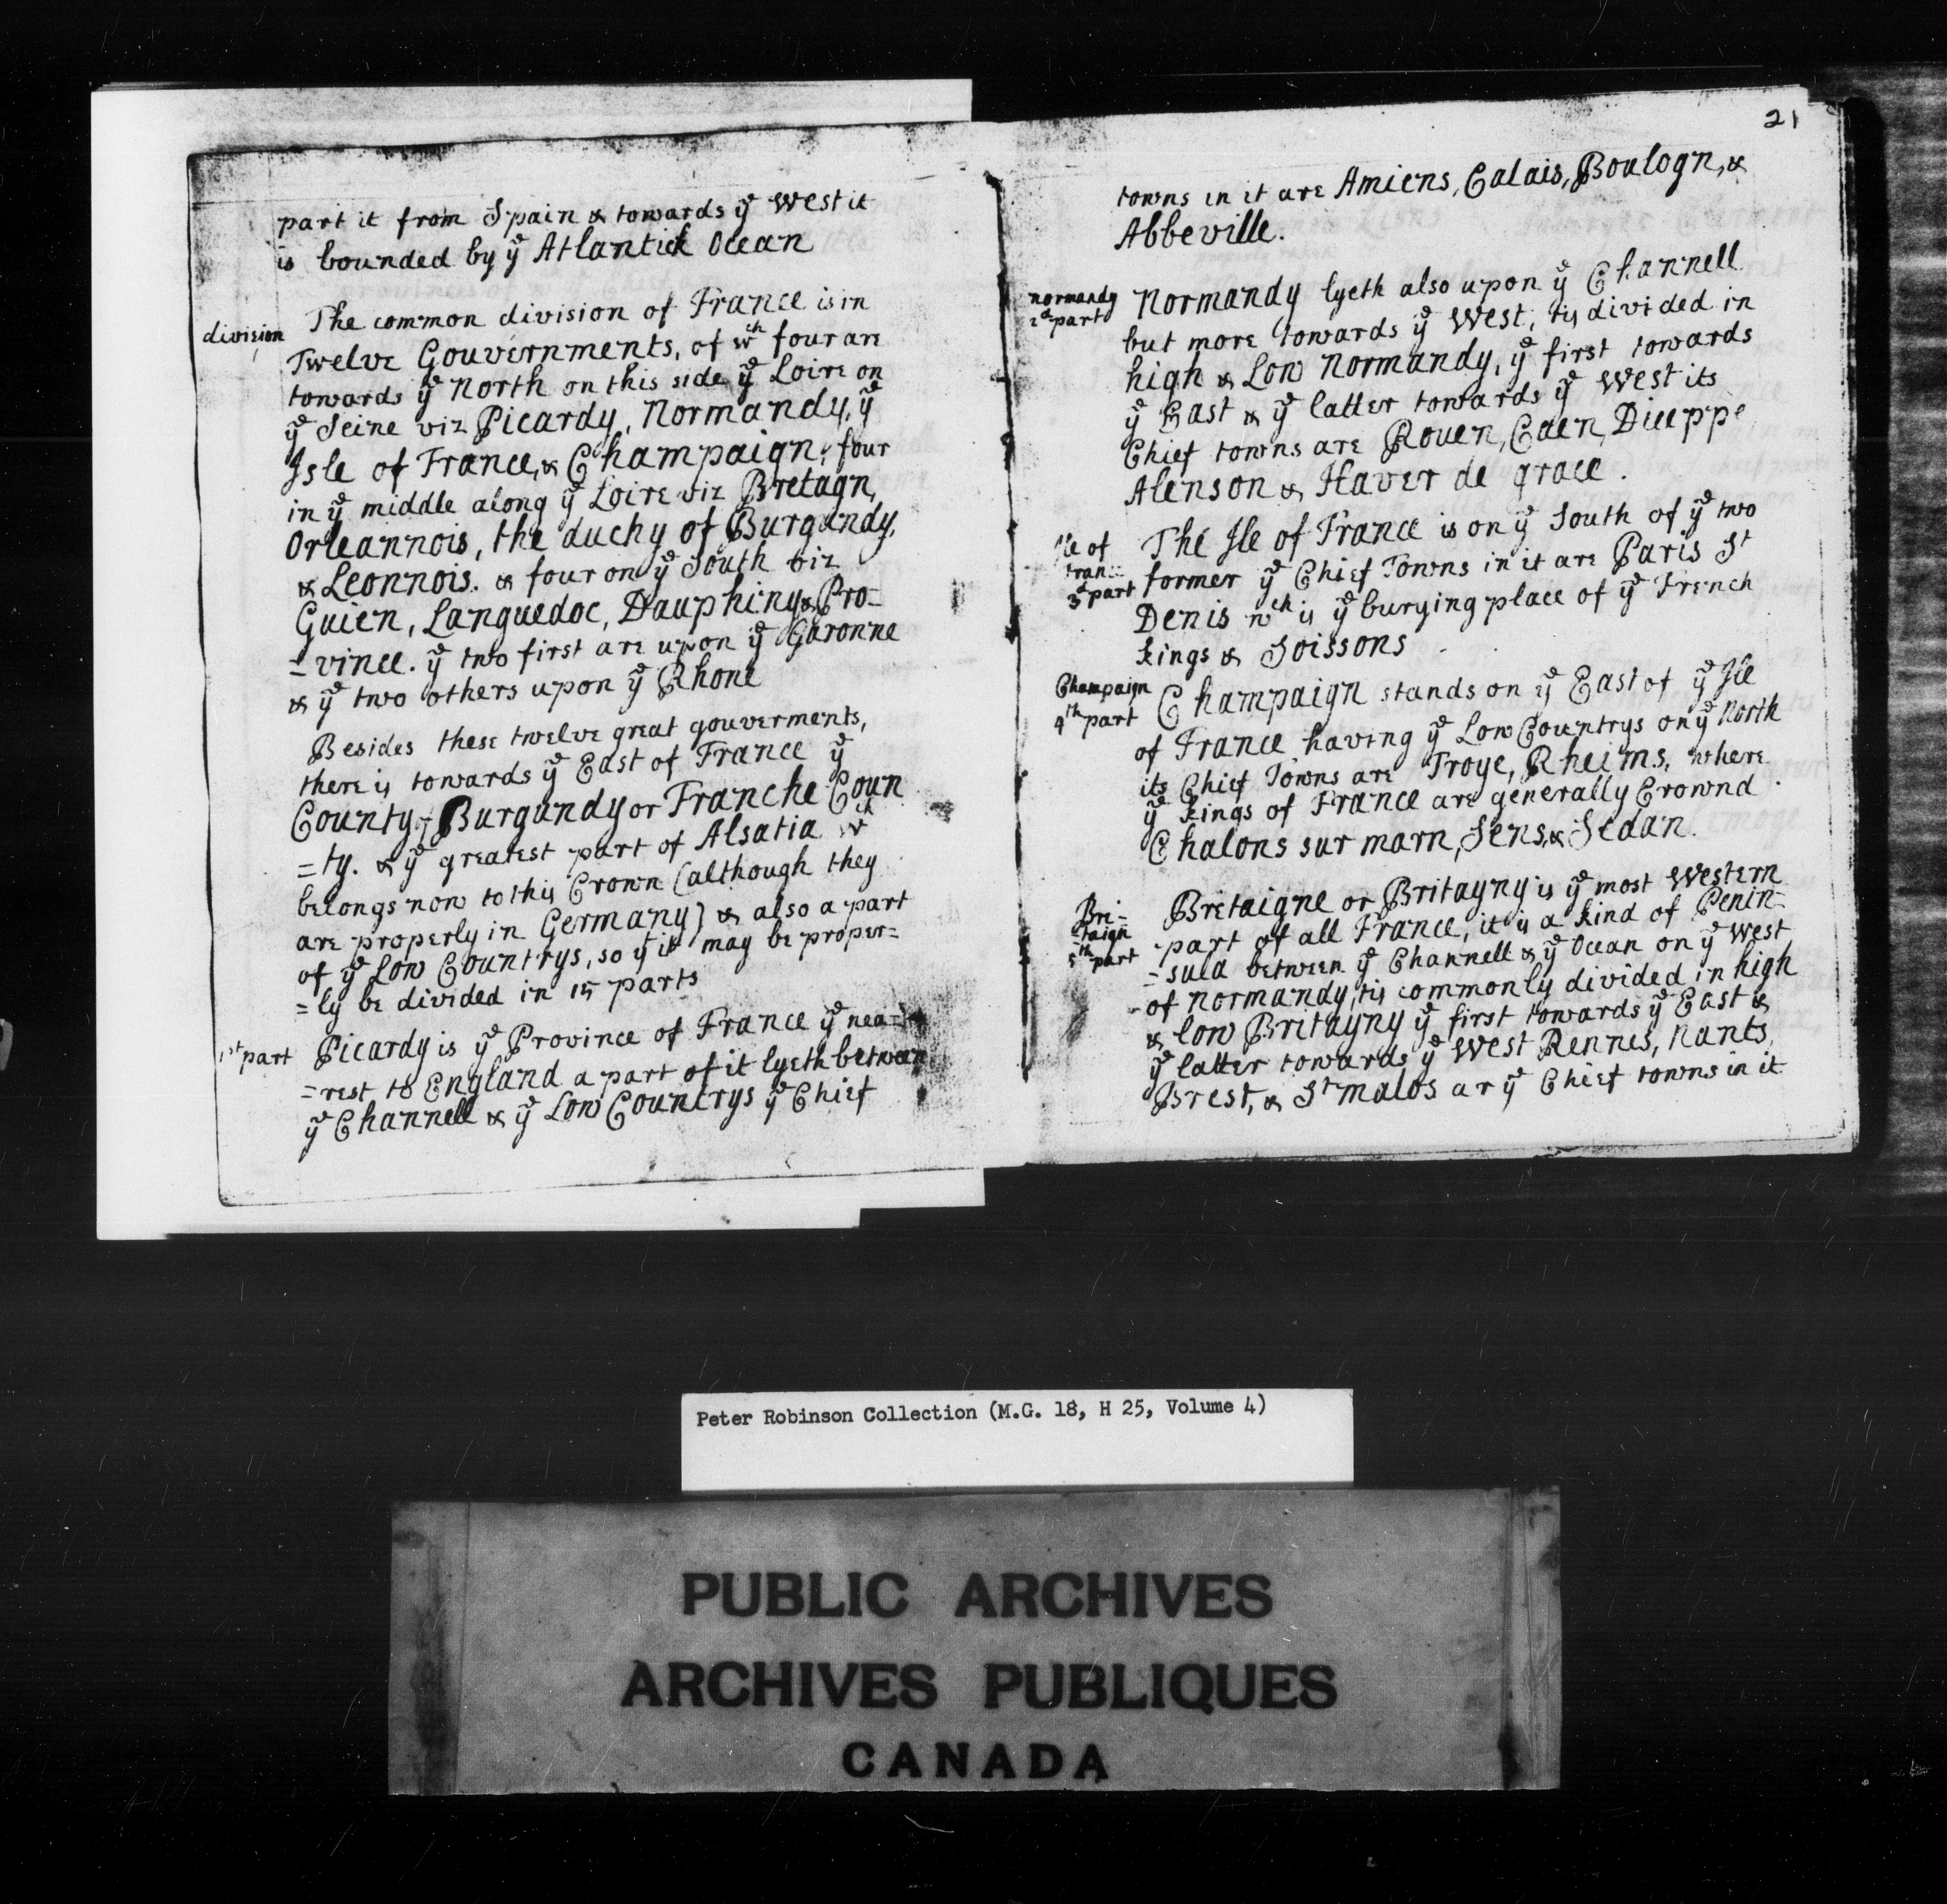 part it from Spain & towards yᵉ West it
is bounded by yᵉ Atlantick Ocean
division
The common division of France is in
Twelve Gouvernments, of wᶜʰ four are
towards yᵉ North on this side yᵉ Loire on
yᵉ Seine viz Picardy, Normandy, yᵉ
Isle of France, & Champaign, four
in yᵉ middle along yᵉ Loire viz Bretagn,
Orleannois, the duchy of Burgundy,
& Leonnois. & four on yᵉ South viz
Guien, Languedoc, Dauphiny & Pro-
=vince. yᵉ two first are upon yᵉ Garonne
& yᵉ two others upon yᵉ Rhone
Besides these twelve great gouverments,
there is towards yᵉ East of France yᵉ
County of Burgundy or Franche Coun
=ty. & yᵉ greatest part of Alsatia wᶜʰ
belongs now to this Crown (although they
are properly in Germany) & also a part
of yᵉ Low Countrys, so yᵗ it may be proper=
=ly be divided in 15 parts
1ˢᵗ part
Picardy is yᵉ Province of France yᵉ nea=
=rest to England a part of it lyeth between
yᵉ Channell & yᵉ Low Countrys yᵉ Chief
21
towns in it are Amiens, Calais, Boulogn, &
Abbeville.
normandy
2ᵈ part
Normandy lyeth also upon yᵉ Channell
but more towards yᵉ West, tis divided in
high & Low Normandy, yᵉ first towards
yᵉ East & yᵉ latter towards yᵉ West its
Chief towns are Rouen, Caen, Dieppe
Alenson & Haver de grace.
Ile of
fran=
3ᵈ part
The Ile of France is on yᵉ South of yᵉ two
former yᵉ Chief Towns in it are Paris Sᵗ
Denis wᶜʰ is yᵉ burying place of yᵉ French
kings & Soissons
Champaign
4ᵗʰ part
Champaign stands on yᵉ East of yᵉ Ile
of France having yᵉ Low Countrys on yᵉ North
its Chief Towns are Troye, Rheims, where
yᵉ kings of France are generally Crownd.
Chalons sur marn, Sens, & Sedan.
Bri-
taign
5ᵗʰ part
Bretaigne or Britayny is yᵉ most Western
part of all France, it is a kind of Penin-
=sula between yᵉ Channell & yᵉ Ocean on yᵉ West
of Normandy, tis commonly divided in high
& low Britayny yᵉ first towards yᵉ East &
yᵉ latter towards yᵉ West Rennes, Nants,
Brest, & Sᵗ malos ar yᵉ Chief towns in it
Peter Robinson Collection (M.G. 18, H 25, Volume 4)
PUBLIC ARCHIVES
ARCHIVES PUBLIQUES
CANADA